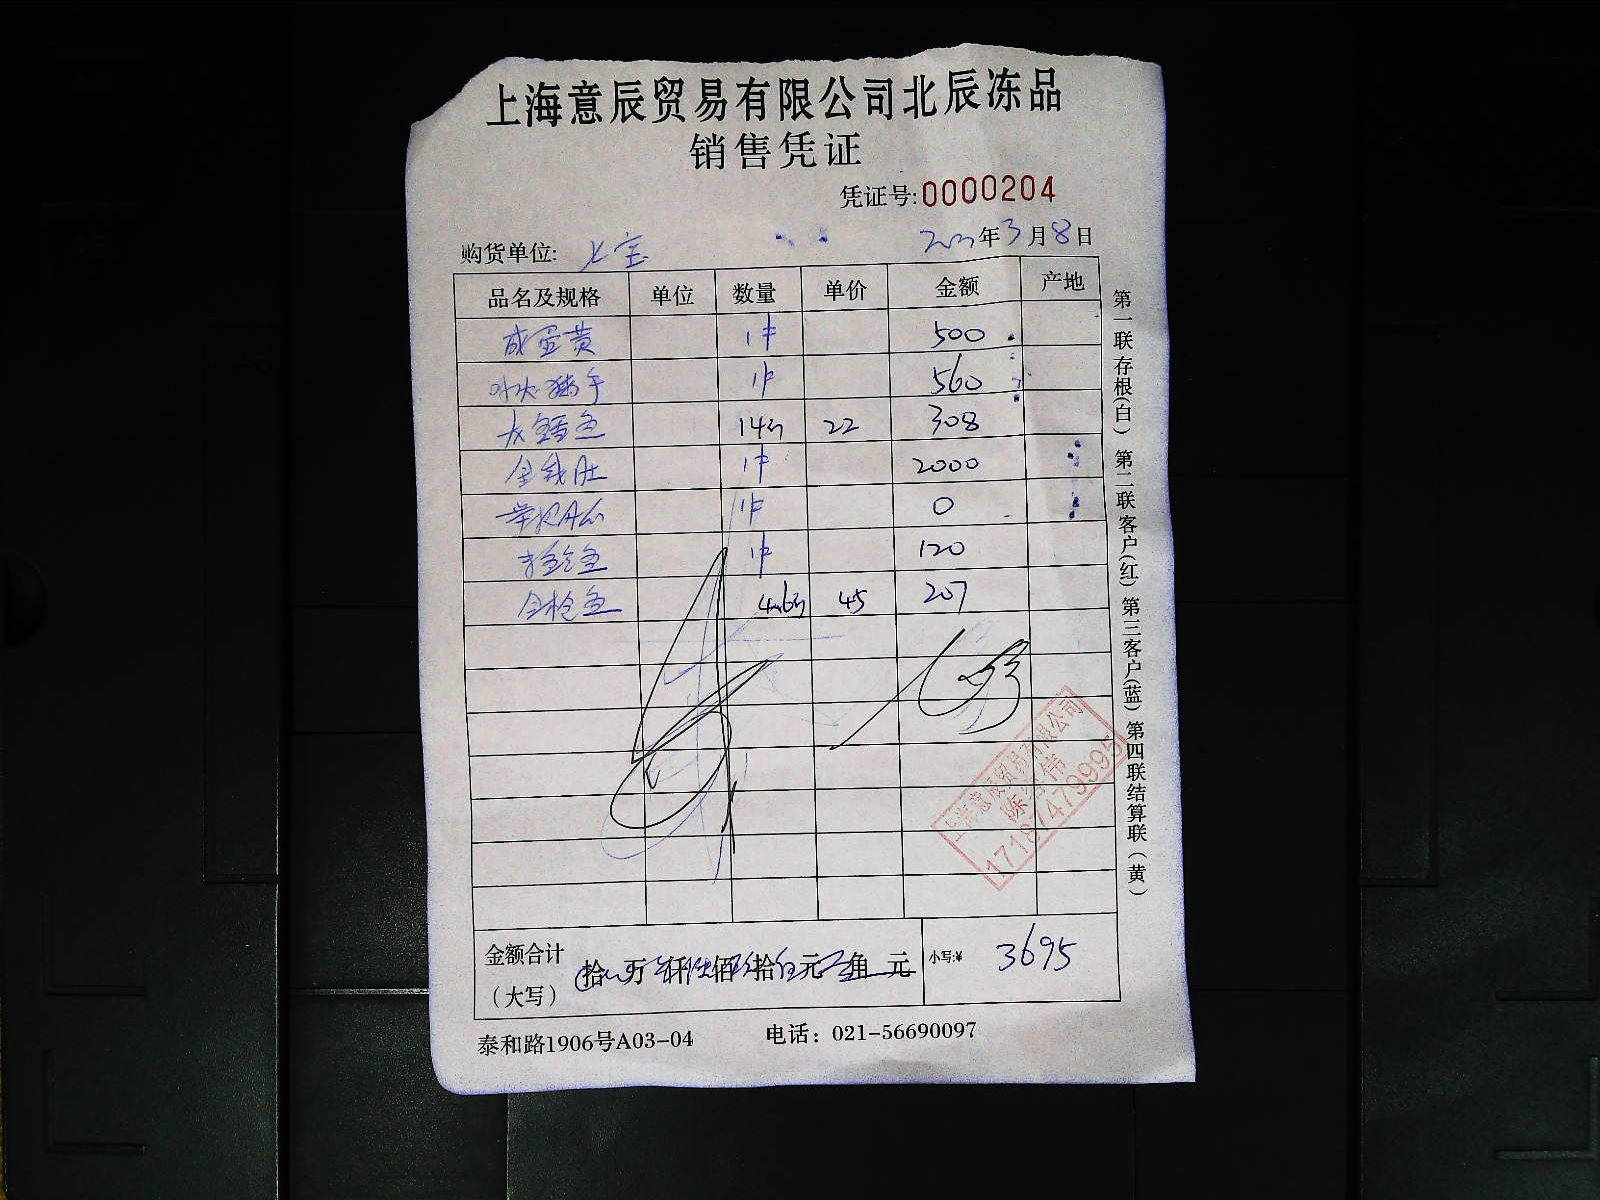 上海意辰贸易有限公司北辰冻品
销售凭证
凭证号:0000204
购货单位: 七宝 年3月8日
品名及规格 单位 数量 单价 金额 产地
咸蛋黄 1件 500
1件 560
龙鳕鱼 14斤 22 308
金钱肚 1件 2000
1件 0
1件 120
金枪鱼 4.6斤 45 207
金额合计 拾 万 仟 佰 拾 元 角 元 小写:¥ 3695
（大写）
泰和路1906号A03-04 电话：021-56690097
第一联存根(白) 第二联客户(红) 第三客户(蓝) 第四联结算联(黄)
上海意辰贸易有限公司
17187479995